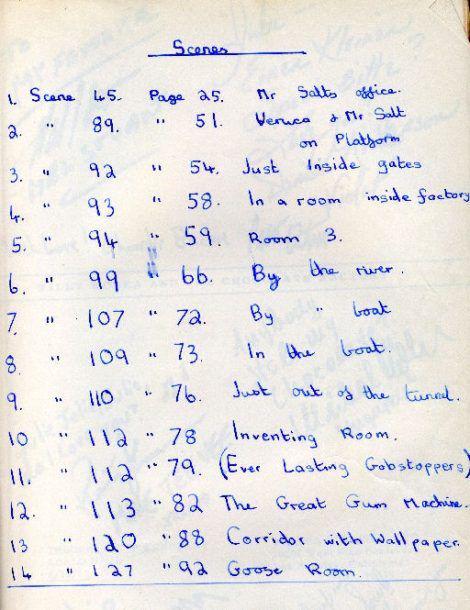 Scenes
1. Scene 45. Page 25. Mr Salts office.
2. " 89. " 51. Veruca & Mr Salt
on Platform
3. " 92 " 54. Just Inside gates
4. " 93 " 58. In a room inside factory
5. " 94 " 59. Room 3.
6. " 99 " 66. By the river.
7. " 107 " 72. By " boat
8. " 109 " 73. In the boat.
9. " 110 " 76. Just out of the tunnel.
10 " 112 " 78 Inventing Room.
11. " 112 " 79. (Ever Lasting Gobstoppers)
12. " 113 " 82 The Great Gum Machine.
13 " 120 " 88 Corridor with Wallpaper.
14 " 127 " 92 Goose Room.